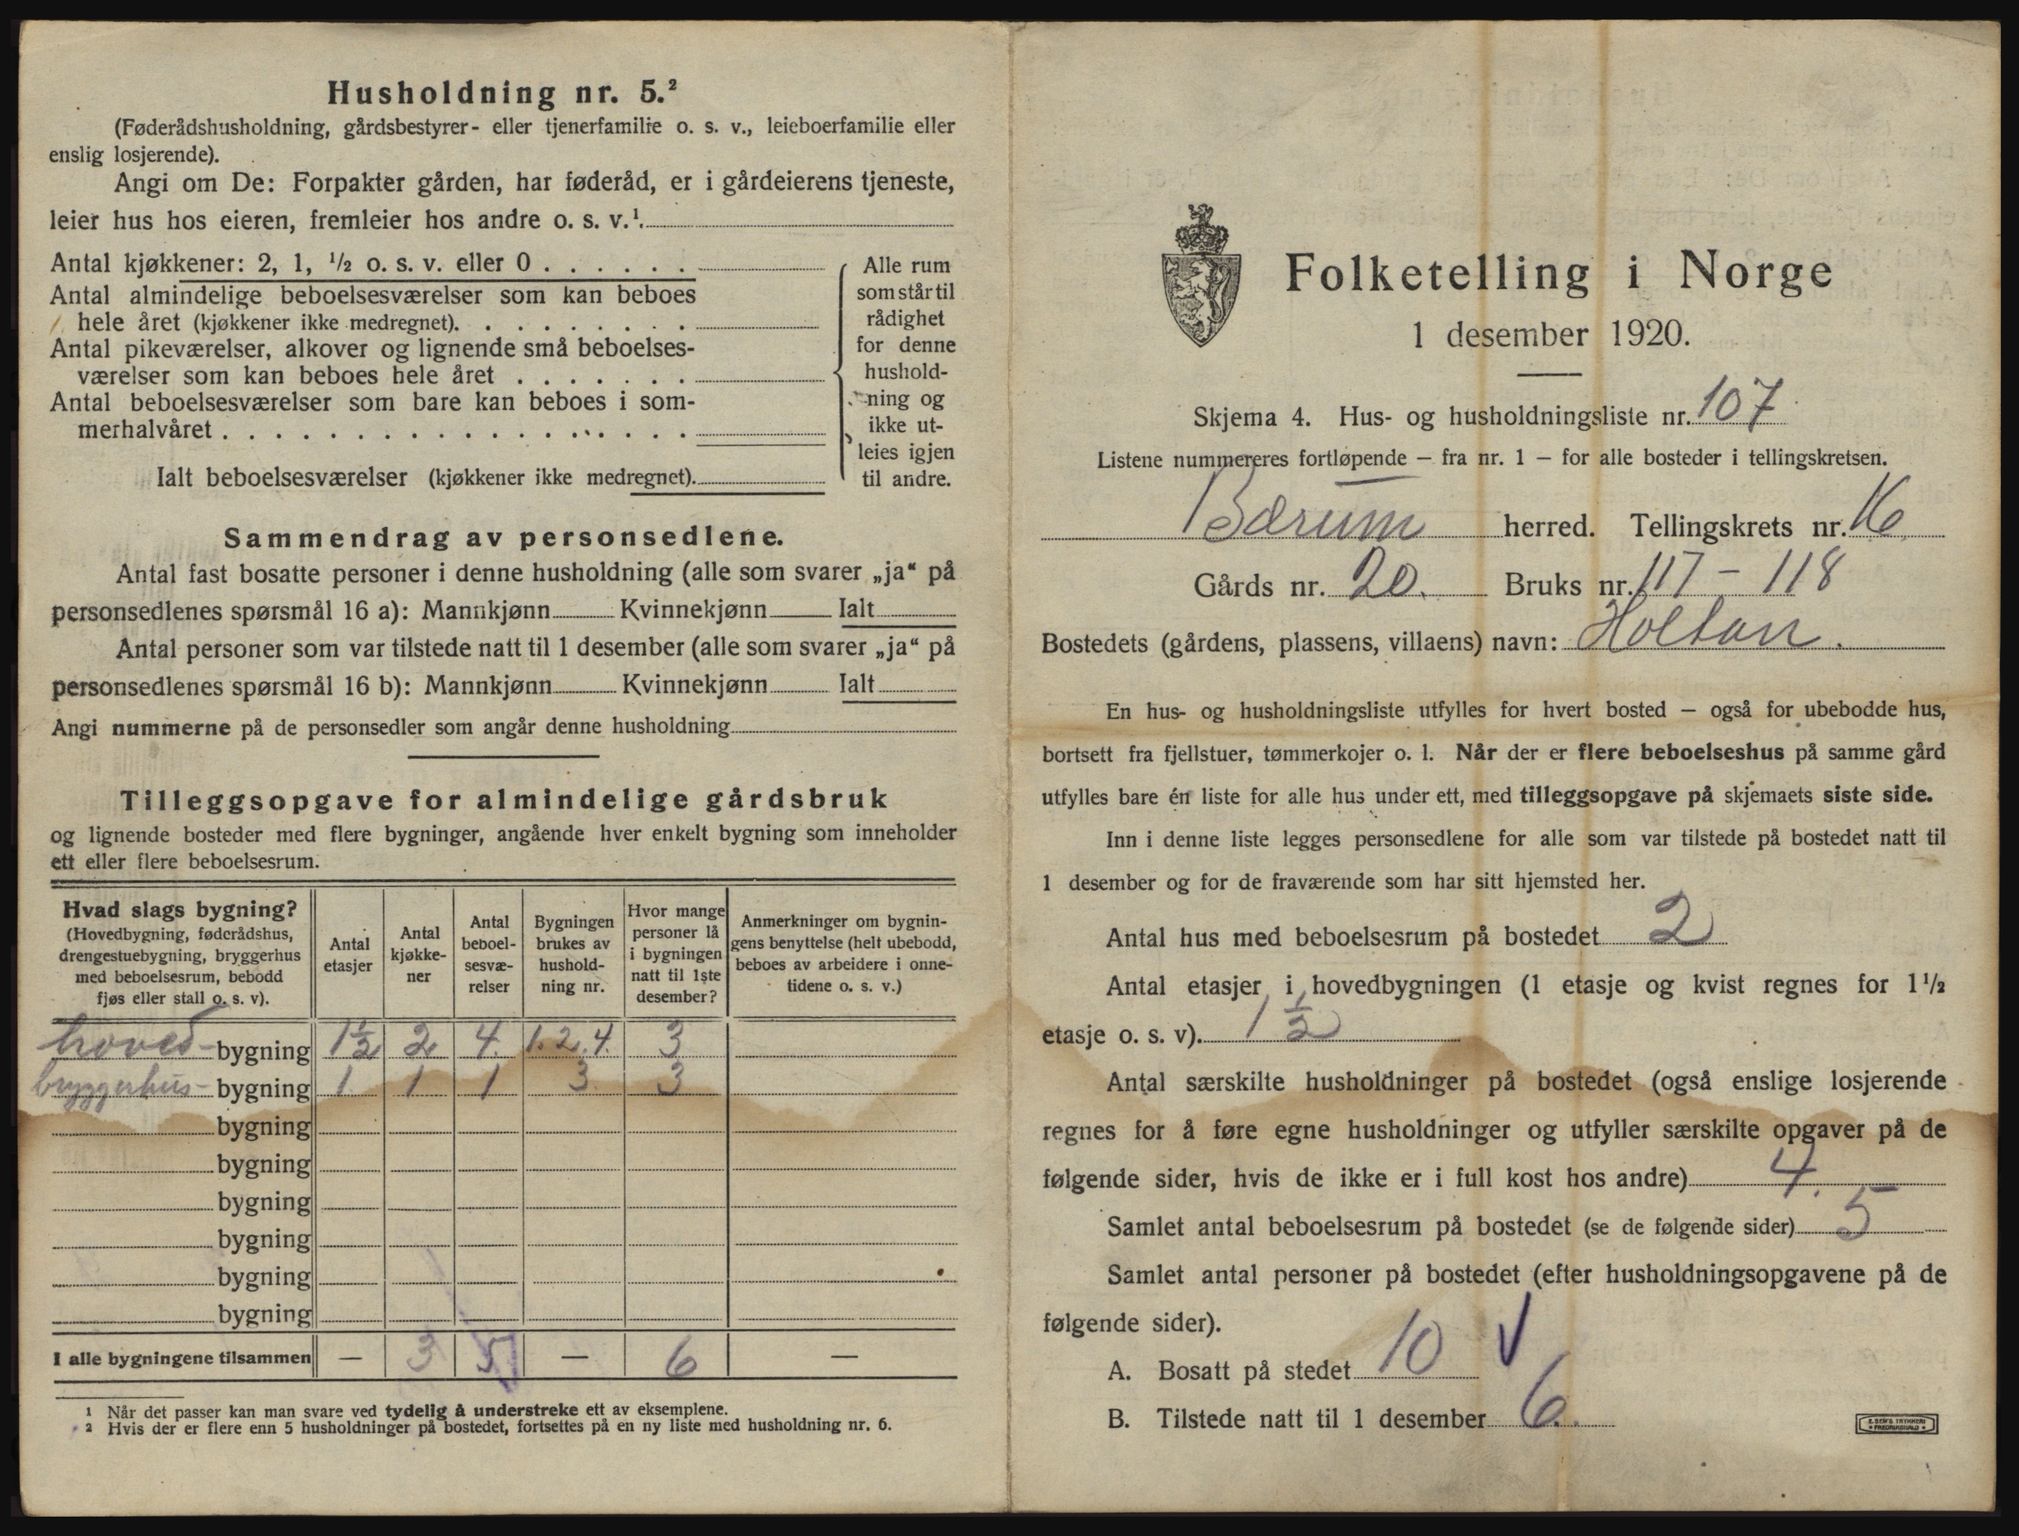 Husholdning nr. 5.²
(Føderådshusholdning, gårdsbestyrer- eller tjenerfamilie o. s. v., leieboerfamilie eller
enslig losjerende).
Angi om De: Forpakter gården, har føderåd, er i gårdeierens tjeneste,
leier hus hos eieren, fremleier hos andre o. s. v.¹.
Antal kjøkkener: 2, 1, ½ o. s. v. eller 0
Antal almindelige beboelsesværelser som kan beboes
hele året (kjøkkener ikke medregnet).
Antal pikeværelser, alkover og lignende små beboelses-
værelser som kan beboes hele året
Antal beboelsesværelser som bare kan beboes i som-
merhalvåret
Ialt beboelsesværelser (kjøkkener ikke medregnet).
Alle rum
som står til
rådighet
for denne
hushold-
ning og
ikke ut-
leies igjen
til andre.
Sammendrag av personsedlene.
Antal fast bosatte personer i denne husholdning (alle som svarer „ja“ på
personsedlenes spørsmål 16 a): Mannkjønn Kvinnekjønn Ialt
Antal personer som var tilstede natt til 1 desember (alle som svarer „ja“ på
personsedlenes spørsmål 16 b): Mannkjønn Kvinnekjønn Ialt
Angi nummerne på de personsedler som angår denne husholdning
Tilleggsopgave for almindelige gårdsbruk
og lignende bosteder med flere bygninger, angående hver enkelt bygning som inneholder
ett eller flere beboelsesrum.
Hvad slags bygning?
(Hovedbygning, føderådshus,
drengestuebygning, bryggerhus
med beboelsesrum, bebodd
fjøs eller stall o. s. v).
Antal
etasjer
Antal
kjøkke-
ner
Antal
beboel-
sesvæ-
relser
Bygningen
brukes av
hushold-
ning nr.
Hvor mange
personer lå
i bygningen
natt til 1ste
desember?
Anmerkninger om bygnin-
gens benyttelse (helt ubebodd,
beboes av arbeidere i onne-
tidene o. s. v.)
hoved- bygning 1½ 2 4. 1.2.4. 3
bryggerhus- bygning 1. 1 1 3. 3
bygning
bygning
bygning
bygning
bygning
bygning
I alle bygningene tilsammen — 3 5 — 6 —
¹ Når det passer kan man svare ved tydelig å understreke ett av eksemplene.
² Hvis der er flere enn 5 husholdninger på bostedet, fortsettes på en ny liste med husholdning nr. 6.
Folketelling i Norge
1 desember 1920.
Skjema 4. Hus- og husholdningsliste nr. 107
Listene nummereres fortløpende — fra nr. 1 — for alle bosteder i tellingskretsen.
Bærum herred. Tellingskrets nr. 16
Gårds nr. 20. Bruks nr. 117 - 118
Bostedets (gårdens, plassens, villaens) navn: Holtan.
En hus- og husholdningsliste utfylles for hvert bosted — også for ubebodde hus,
bortsett fra fjellstuer, tømmerkojer o. l. Når der er flere beboelseshus på samme gård
utfylles bare én liste for alle hus under ett, med tilleggsopgave på skjemaets siste side.
Inn i denne liste legges personsedlene for alle som var tilstede på bostedet natt til
1 desember og for de fraværende som har sitt hjemsted her.
Antal hus med beboelsesrum på bostedet 2
Antal etasjer i hovedbygningen (1 etasje og kvist regnes for 1½
etasje o. s. v). 1½
Antal særskilte husholdninger på bostedet (også enslige losjerende
regnes for å føre egne husholdninger og utfyller særskilte opgaver på de
følgende sider, hvis de ikke er i full kost hos andre) 4.
Samlet antal beboelsesrum på bostedet (se de følgende sider) 5
Samlet antal personer på bostedet (efter husholdningsopgavene på de
følgende sider).
A. Bosatt på stedet 10 √
B. Tilstede natt til 1 desember 6.